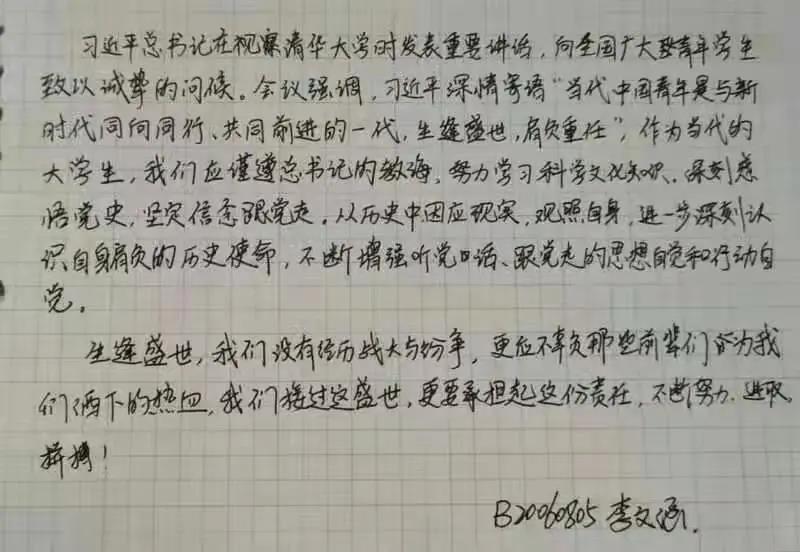 习近平总书记在视察清华大学时发表重要讲话，向全国广大青年学生
致以诚挚的问候。会议强调，习近平深情寄语“当代中国青年是与新
时代同向同行、共同前进的一代，生逢盛世，肩负重任”，作为当代的
大学生，我们应谨遵总书记的教诲，努力学习科学文化知识，深刻感
悟党史，坚定信念跟党走。从历史中因应现实，观照自身，进一步深刻认
识自身肩负的历史使命，不断增强听党口话、跟党走的思想自觉和行动自
觉。
生逢盛世，我们没有经历战火与纷争，更应不辜负那些前辈们为我
们洒下的热血，我们接过这盛世，更要承担起这份责任，不断努力、进取，
拼搏！
B20060805 李文涵.